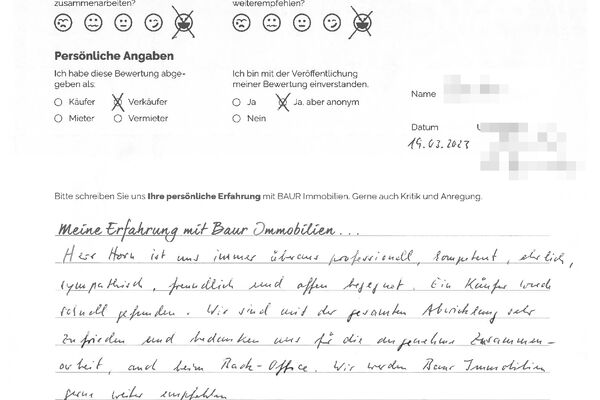 zusammenarbeiten?
weiterempfehlen?
Persönliche Angaben
Ich habe diese Bewertung abge-
geben als:
Käufer Verkäufer
Mieter Vermieter
Ich bin mit der Veröffentlichung
meiner Bewertung einverstanden.
Ja Ja, aber anonym
Nein
Name
Datum
19.03.2023
Bitte schreiben Sie uns Ihre persönliche Erfahrung mit BAUR Immobilien. Gerne auch Kritik und Anregung.
Meine Erfahrung mit Baur Immobilien...
Herr Horn ist uns immer überaus professionell, kompetent, ehrlich,
sympathisch, freundlich und offen begegnet. Ein Käufer wurde
schnell gefunden. Wir sind mit der gesamten Abwicklung sehr
zufrieden und bedanken uns für die angenehme Zusammen-
arbeit, auch beim Back-Office. Wir werden Baur Immobilien
gerne weiter empfehlen